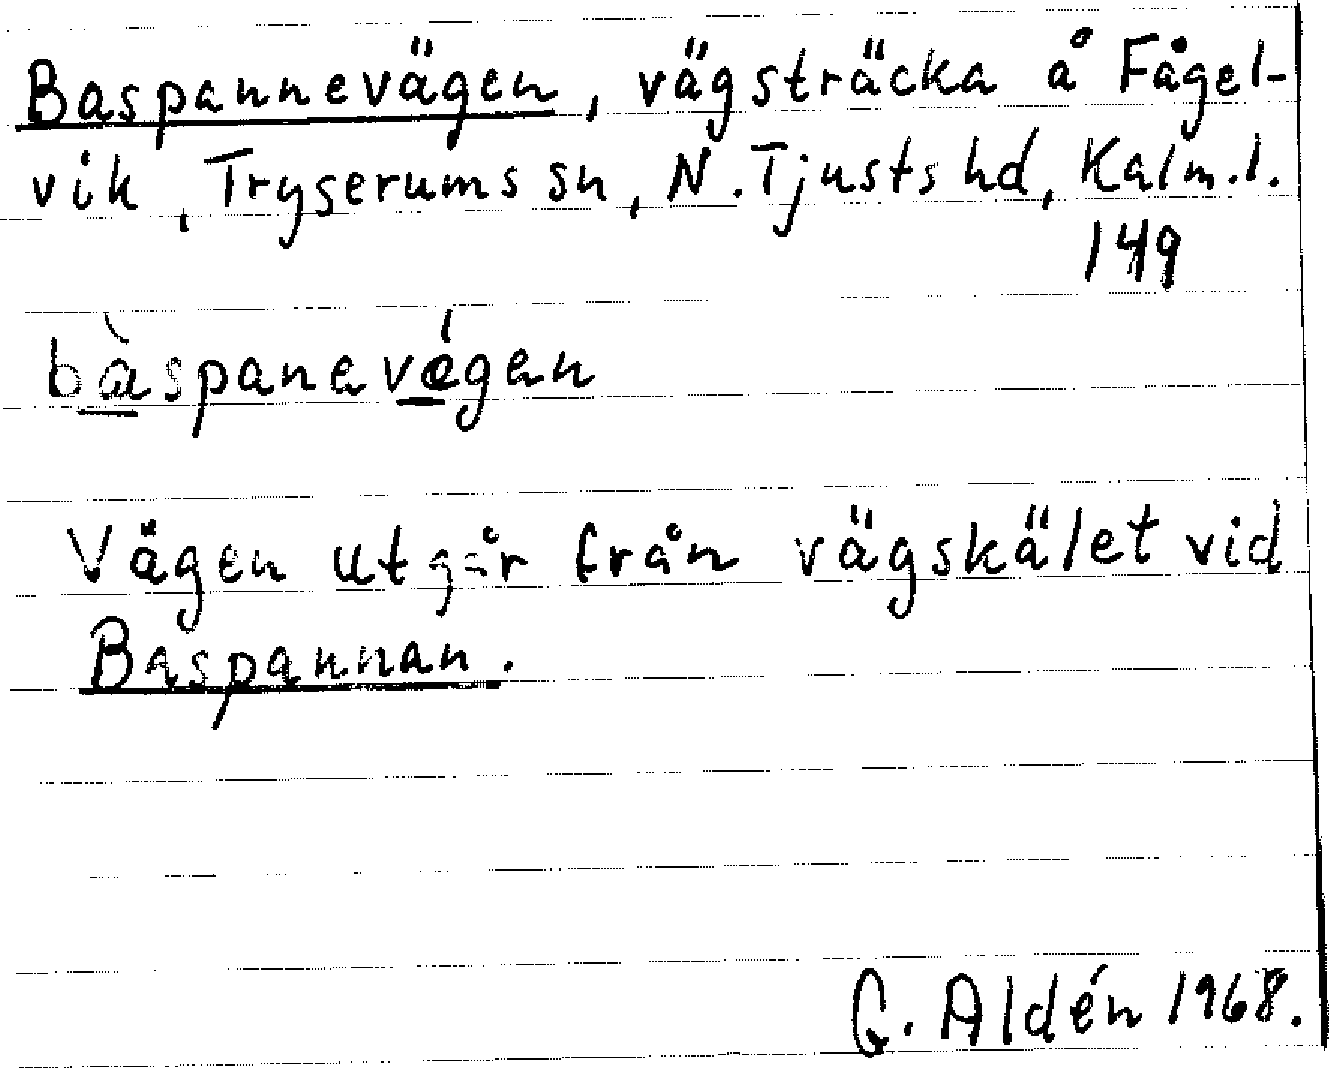 Baspannevägen, vägsträcka å Fågel-
vik, Tryserums sn, N. Tjusts hd, Kalm.l.
149
bàspanevégen
Vägen utgår från vägskälet vid
Baspannan.
G. Aldén 1968.